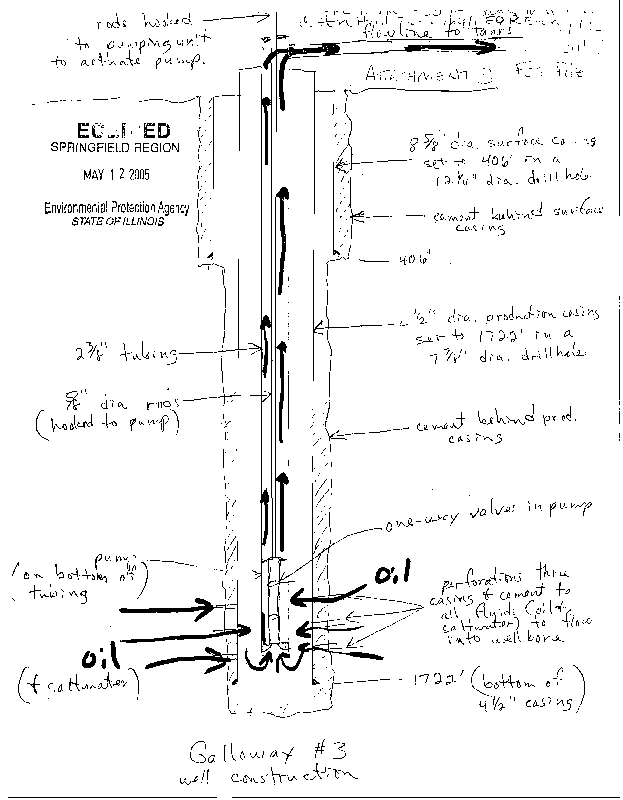 rods hooked
to pumping unit
to activate pump.
flowline to tanks
ATTACHMENT
SPRINGFIELD REGION
MAY 12 2005
Environmental Protection Agency
STATE OF ILLINOIS
8 5/8" dia. surface casing
set to 406' in a
dia. drill hole
cement behind surface
casing
406'
1/2" dia. production casing
set to 1722' in a
7 7/8" dia. drillhole
2 3/8" tubing
5/8" dia rods
(hooked to pump)
cement behind prod.
casing
one-way valves in pump
pump
(on bottom of
tubing)
oil
perforations thru
casing & cement to
fluids (oil &
saltwater) to flow
into wellbore
oil
(+ saltwater)
1722' (bottom of
4 1/2" casing)
Galloway #3
well construction